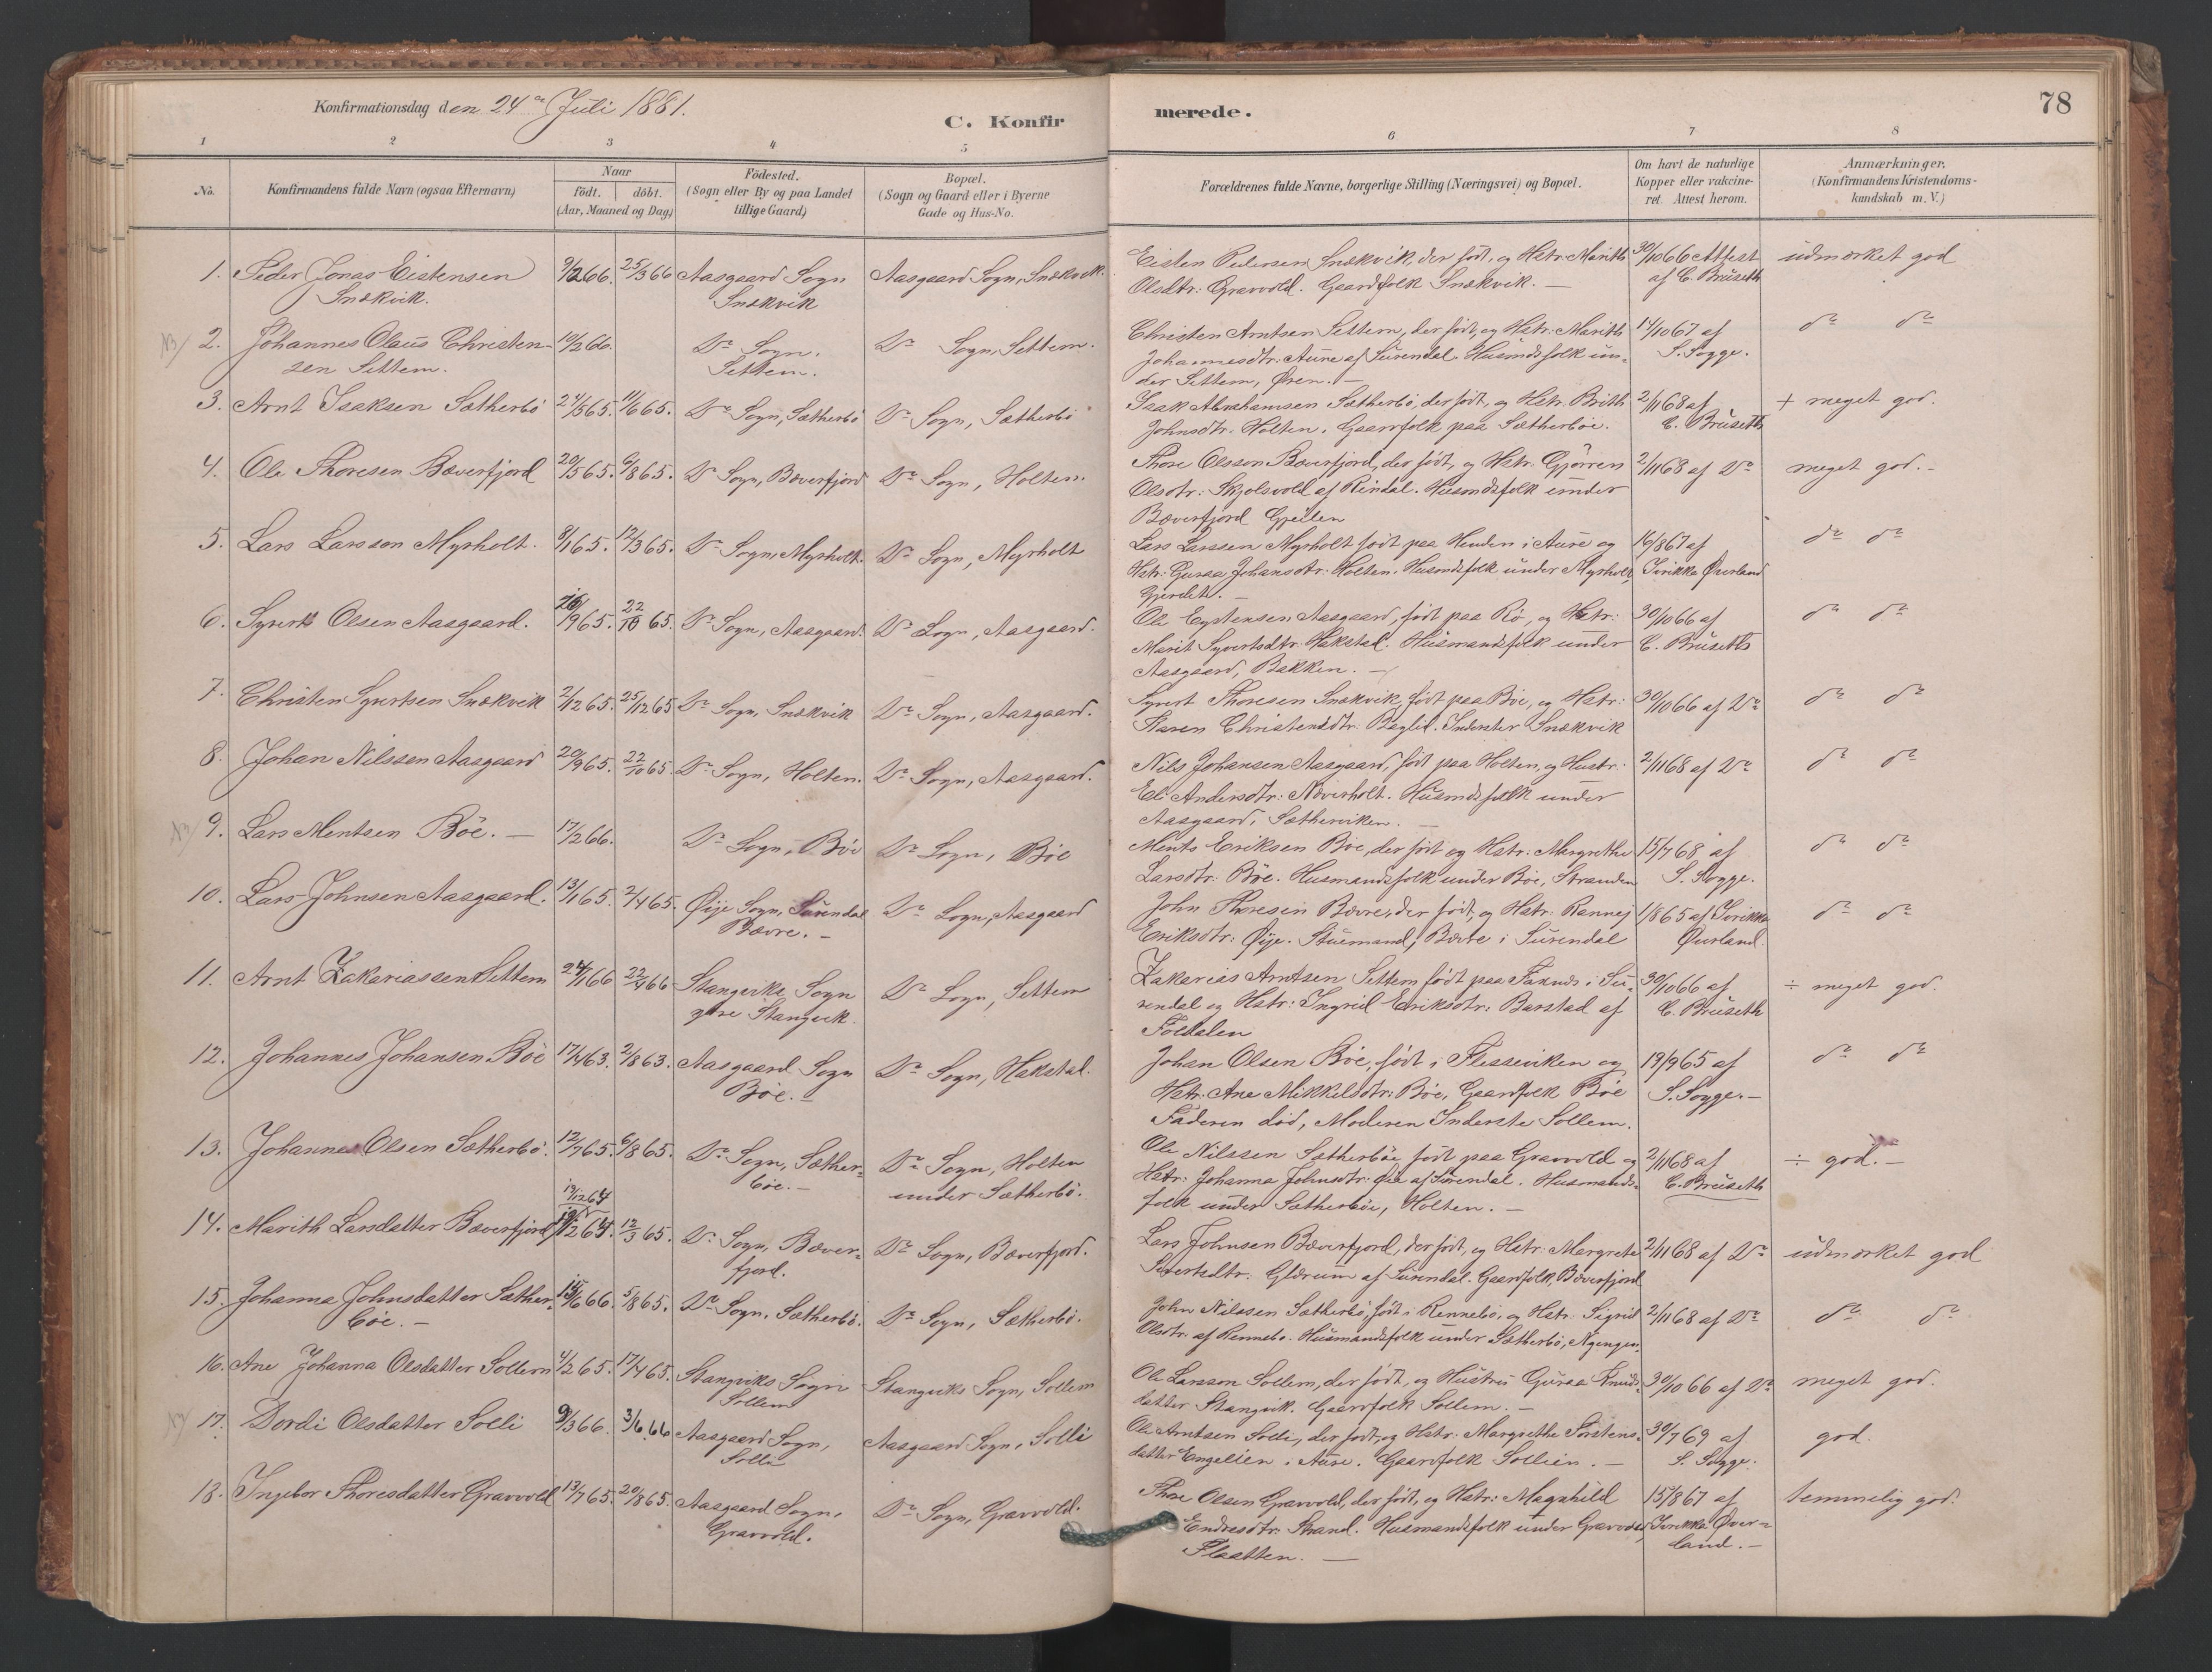 Konfirmationsdag den 24de Juli 1881.
C. Konfirmerede.
78
1 2 3 4 5 6 7 8
No.
Konfirmandens fulde Navn (ogsaa Efternavn)
Naar
født. døbt.
(Aar, Maaned og Dag)
Födested.
(Sogn eller By og paa Landet
tillige Gaard)
Bopæl.
(Sogn og Gaard eller i Byerne
Gade og Hus-No.
Forældrenes fulde Navne, borgerlige Stilling (Næringsvei) og Bopæl.
Om havt de naturlige
Kopper eller vakcine-
ret. Attest herom.
Anmærkninger.
(Konfirmandens Kristendoms-
kundskab m. V.)
1. Peder Jonas Eistensen 9/2 66. 25/3 66 Aasgaard Sogn Aasgaard Sogn, Snækvik. Eisten Pedersen Snækvik, der født, og Hstr: Marith 30/10 66 Attest udmærket god
Snækvik. Snækvik Olsdtr: Gravvold. Gaardfolk Snækvik. — af C. Brüseth
2. Johannes Olaus Christen- 10/2 66. Do Sogn. Do Sogn, Settem. Christen Arntsen Settem, der født, og Hstr: Marith 14/10 67 af do do
sen Settem. Settem. Johannesdtr: Aune af Surendal. Husmdsfolk un- S. Sogge.
der Settem, Øren. —
3. Arnt Isaksen Sætherbö 24/5 65. 11/6 65. Do Sogn, Sætherbö Do Sogn, Sætherbö Isak Abrahamsen Sætherbö, der født, og Hstr. Brith 2/11 68 af + meget god.
Johnsdtr: Holten. Gaardfolk paa Sætherböe. C. Brüseth
4. Ole Thoresen Bæverfjord 20/5 65. 6/8 65. Do Sogn, Bæverfjord Do Sogn, Holten. Thore Olsson Bæverfjord, der født, og Hstr. Gjörren 2/11 68 af Do meget god. -
Olsdtr: Skjolsvold af Rindal. Husmdsfolk under
Bæverfjord
5. Lars Larsson Myrholt. 8/1 65. 12/3 65. Do Sogn, Myrholt. Do Sogn, Myrholt Lars Larssen Myrholt født paa Henden i Aure og 16/8 67 af do do
Hstr: Guraa Johansdtr: Holten. Husmdsfolk under Myrholt, Iverikka Øverland
Gjerdet. —
6. Syvert Olsen Aasgaard. /9 65. 22/10 65. Do Sogn, Aasgaard. Do Sogn, Aasgaard. Ole Eystensen Aasgaard, født paa Rö, og Hstr: 30/10 66 af do do
Marit Syvertsdtr: Hakstad. Husmandsfolk under C. Brüseth
Aasgaard, Bakken. —
7. Christen Syvertsen Snækvik 2/12 65. 25/12 65 Do Sogn, Snækvik Do Sogn, Aasgaard. Syvert Thoresen Snækvik, født paa Böe, og Hstr: 30/10 66 af Do do do
Karen Christensdtr: Bæglid. Inderster Snækvik
8. Johan Nilssen Aasgaard 20/9 65. 22/10 65. Do Sogn, Holten. Do Sogn, Aasgaard. Nils Johansen Aasgaard, født paa Holten, og Hustr: 2/11 68 af Do do do
Eli Andersdtr: Næverholt. Husmdsfolk under
Aasgaard, Sætherviken. —
9. Lars Mentsen Böe. — 17/2 66. Do Sogn, Böe Do Sogn, Böe Ments Eriksen Böe, der født og Hstr: Margrethe 15/7 68 af do do
Larsdtr: Böe. Husmandsfolk under Böe, Stranden S. Sogge.
10. Lars Johnsen Aasgaard. 13/1 65. 2/4 65. Øije Sogn, Surendal Do Sogn, Aasgaard John Thoresen Bævre, der født, og Hstr: Rannej 1/8 65 af Iverikka do do
Bævre. - Eriksdtr: Øije. Stuemand, Bævre i Surendal Øverland.
11. Arnt Zakariassen Settem 24/1 66 22/4 66 Stangviks Sogn Do Sogn, Settem Zakarias Arntsen Settem født paa Faknæs i Su- 30/10 66 af ÷ meget god.
Stangvik. rendal og Hstr: Ingrid Eriksdtr: Barstad af C. Brüseth
Foldalen
12. Johannes Johansen Böe 17/4 63. 2/8 63. Aasgaard Sogn Do Sogn, Hakstad. Johan Olsen Böe, født i Flesseviken og 19/9 65 af do do
Böe. - Hstr: Ane Mikkelsdtr: Böe, Gaardfolk Böe S. Sogge. —
Faderen död, Moderen Inderste Sollem.
13. Johannes Olsen Sætherbö. 12/7 65. 6/8 65. Do Sogn, Sæther- Do Sogn, Holten Ole Nilssen Sætherböe født paa Gravvold og 2/11 68 af ÷ god. —
böe. — under Sætherbö. Hstr: Johanna Johnsdtr: Øie af Surendal. Husmands- C. Brüseth
folk under Sætherböe, Holten. —
19/12 64
14. Marith Larsdatter Bæverfjord 19/12 64. 12/3 65. Do Sogn, Bæver- Do Sogn, Bæverfjord. Lars Johnsen Bæverfjord, der født, og Hstr: Margrete 2/11 68 af Do udmærket god
fjord. Sivertsdtr. Glærum af Surendal. Gaardfolk, Bæverfjord
15. Johanna Johnsdatter Sæther- /6 66. 5/8 65. Do Sogn, Sætherbö. Do Sogn, Sætherbö. John Nilssen Sætherbö, født i Rennebö, og Hstr: Sigrid 2/11 68 af Do do do
böe. — Olsdtr. af Rennebö. Husmandsfolk under Sætherbö,
16. Ane Johanna Olsdatter Sollem 4/2 65. 17/4 65. Stangviks Sogn Stangviks Sogn, Sollem Ole Larsson Sollem, der født, og Hustru Guraa Knuds- 30/10 66 af Do meget god.
Sollem datter Stangvik. Gaardfolk Sollem. —
17. Dordi Olsdatter Solli 9/3 66. 3/6 66 Aasgaard Sogn, Aasgaard Sogn, Solli Ole Arntsen Solli, der født, og Hstr: Margrethe Torstens- 30/7 69 af god.
Solli datter Engelien i Aure. Gaardfolk Sollien. — S. Sogge.
18. Ingebor Thoresdatter Gravvold 13/7 65. 20/8 65. Aasgaard Sogn, Do Sogn, Gravvold. Thore Olsen Gravvold, der født, og Hstr: Magnhild 15/8 67 af temmelig god.
Gravvold. Endresdtr: Strand. Husmandsfolk under Gravvold, Iverikka Øver-
Plaatten. — land. —